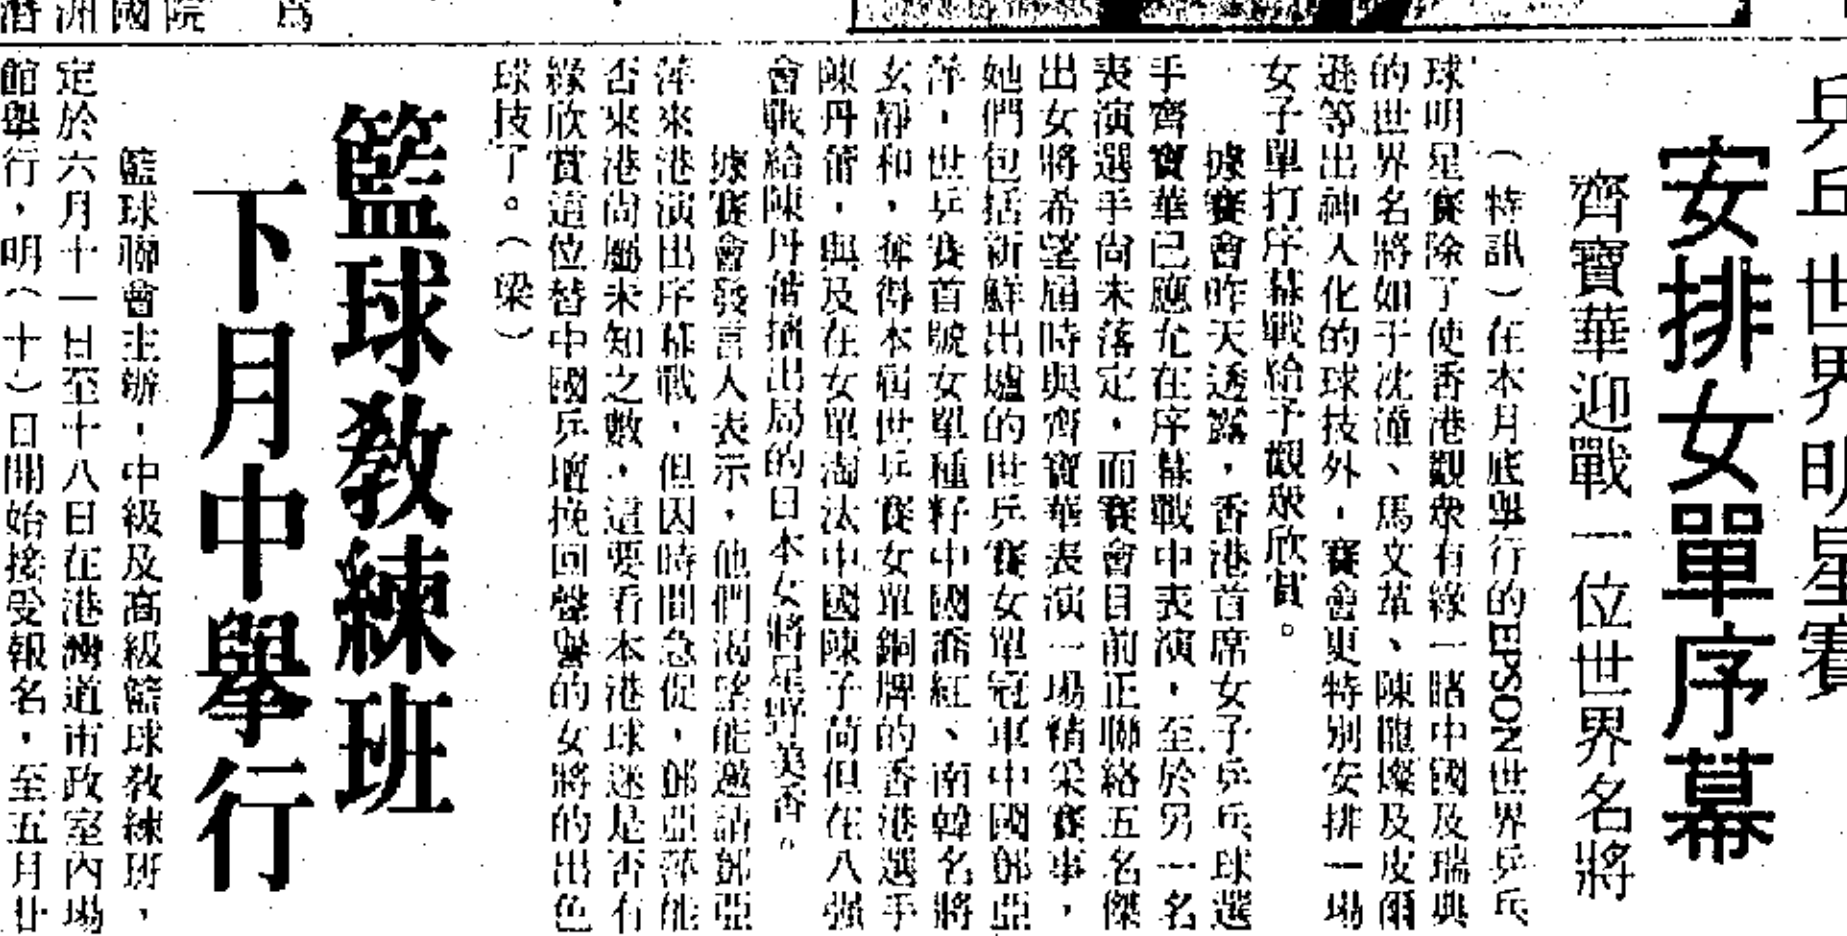 乒乓世界明星賽
安排女單序幕
齊寶華迎戰一位世界名將
（特訊）在本月底舉行的EPSON世界乒乓
球明星賽除了使香港觀衆有緣一睹中國及瑞典
的世界名將如于沈潼、馬文革、陳龍燦及皮爾
遜等出神入化的球技外，賽會更特別安排一場
女子單打序幕戰給予觀衆欣賞。
據賽會昨天透露，香港首席女子乒乓球選
手齊寶華已應允在序幕戰中表演，至於另一名
表演選手尚未落定，而賽會目前正聯絡五名傑
出女將希望屆時與齊寶華表演一場精采賽事，
她們包括新鮮出爐的世乒賽女單冠軍中國鄧亞
萍，世乒賽首號女單種籽中國喬紅、南韓名將
玄靜和，奪得本屆世乒賽女單銅牌的香港選手
陳丹蕾，與及在女單淘汰中國陳子荷但在八強
會戰給陳丹蕾摘出局的日本女將星野美香。
據賽會發言人表示，他們渴望能邀請鄧亞
萍來港演出序幕戰，但因時間急促，鄧亞萍能
否來港尚屬未知之數，這要看本港球迷是否有
緣欣賞這位替中國乒壇挽回聲譽的女將的出色
球技了。（梁）
籃球教練班
下月中舉行
籃球聯會主辦，中級及高級籃球教練班，
定於六月十一日至十八日在港灣道市政室內場
館舉行，明（十）日開始接受報名，至五月廿
洲國院 為